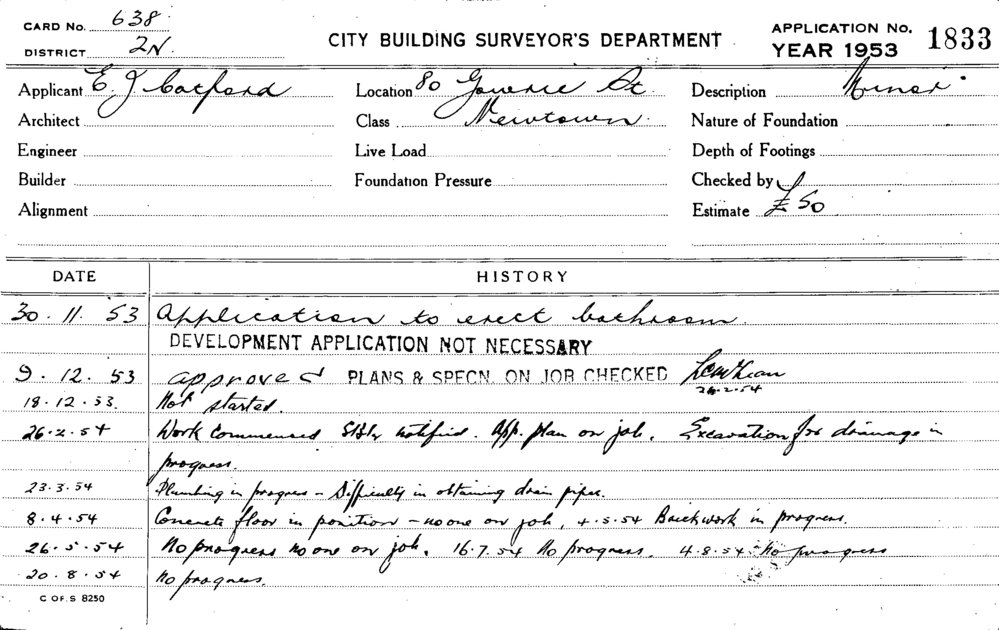 CARD No. 638
DISTRICT 2N.
CITY BUILDING SURVEYOR'S DEPARTMENT
APPLICATION No. 1833
YEAR 1953
Applicant E. J Catford Location 80 Gowrie St. Description Minor
Architect Class Newtown. Nature of Foundation
Engineer Live Load Depth of Footings
Builder Foundation Pressure Checked by
Alignment Estimate £50
DATE HISTORY
30.11.53 Application to erect bathroom.
DEVELOPMENT APPLICATION NOT NECESSARY
9.12.53 approved PLANS & SPECN. ON JOB CHECKED
26.2.54
18.12.53. Not started.
26.2.54 Work Commenced notified. App. plan on job. Excavation for drainage in
progress.
23.3.54 Plumbing in progress - Difficulty in obtaining drain pipes.
8.4.54 Concrete floor in position - no one on job, 4.5.54 Brickwork in progress.
26.5.54 No progress no one on job. 16.7.54 No progress. 4.8.54 No progress
20.8.54 No progress.
C OF. S 8250